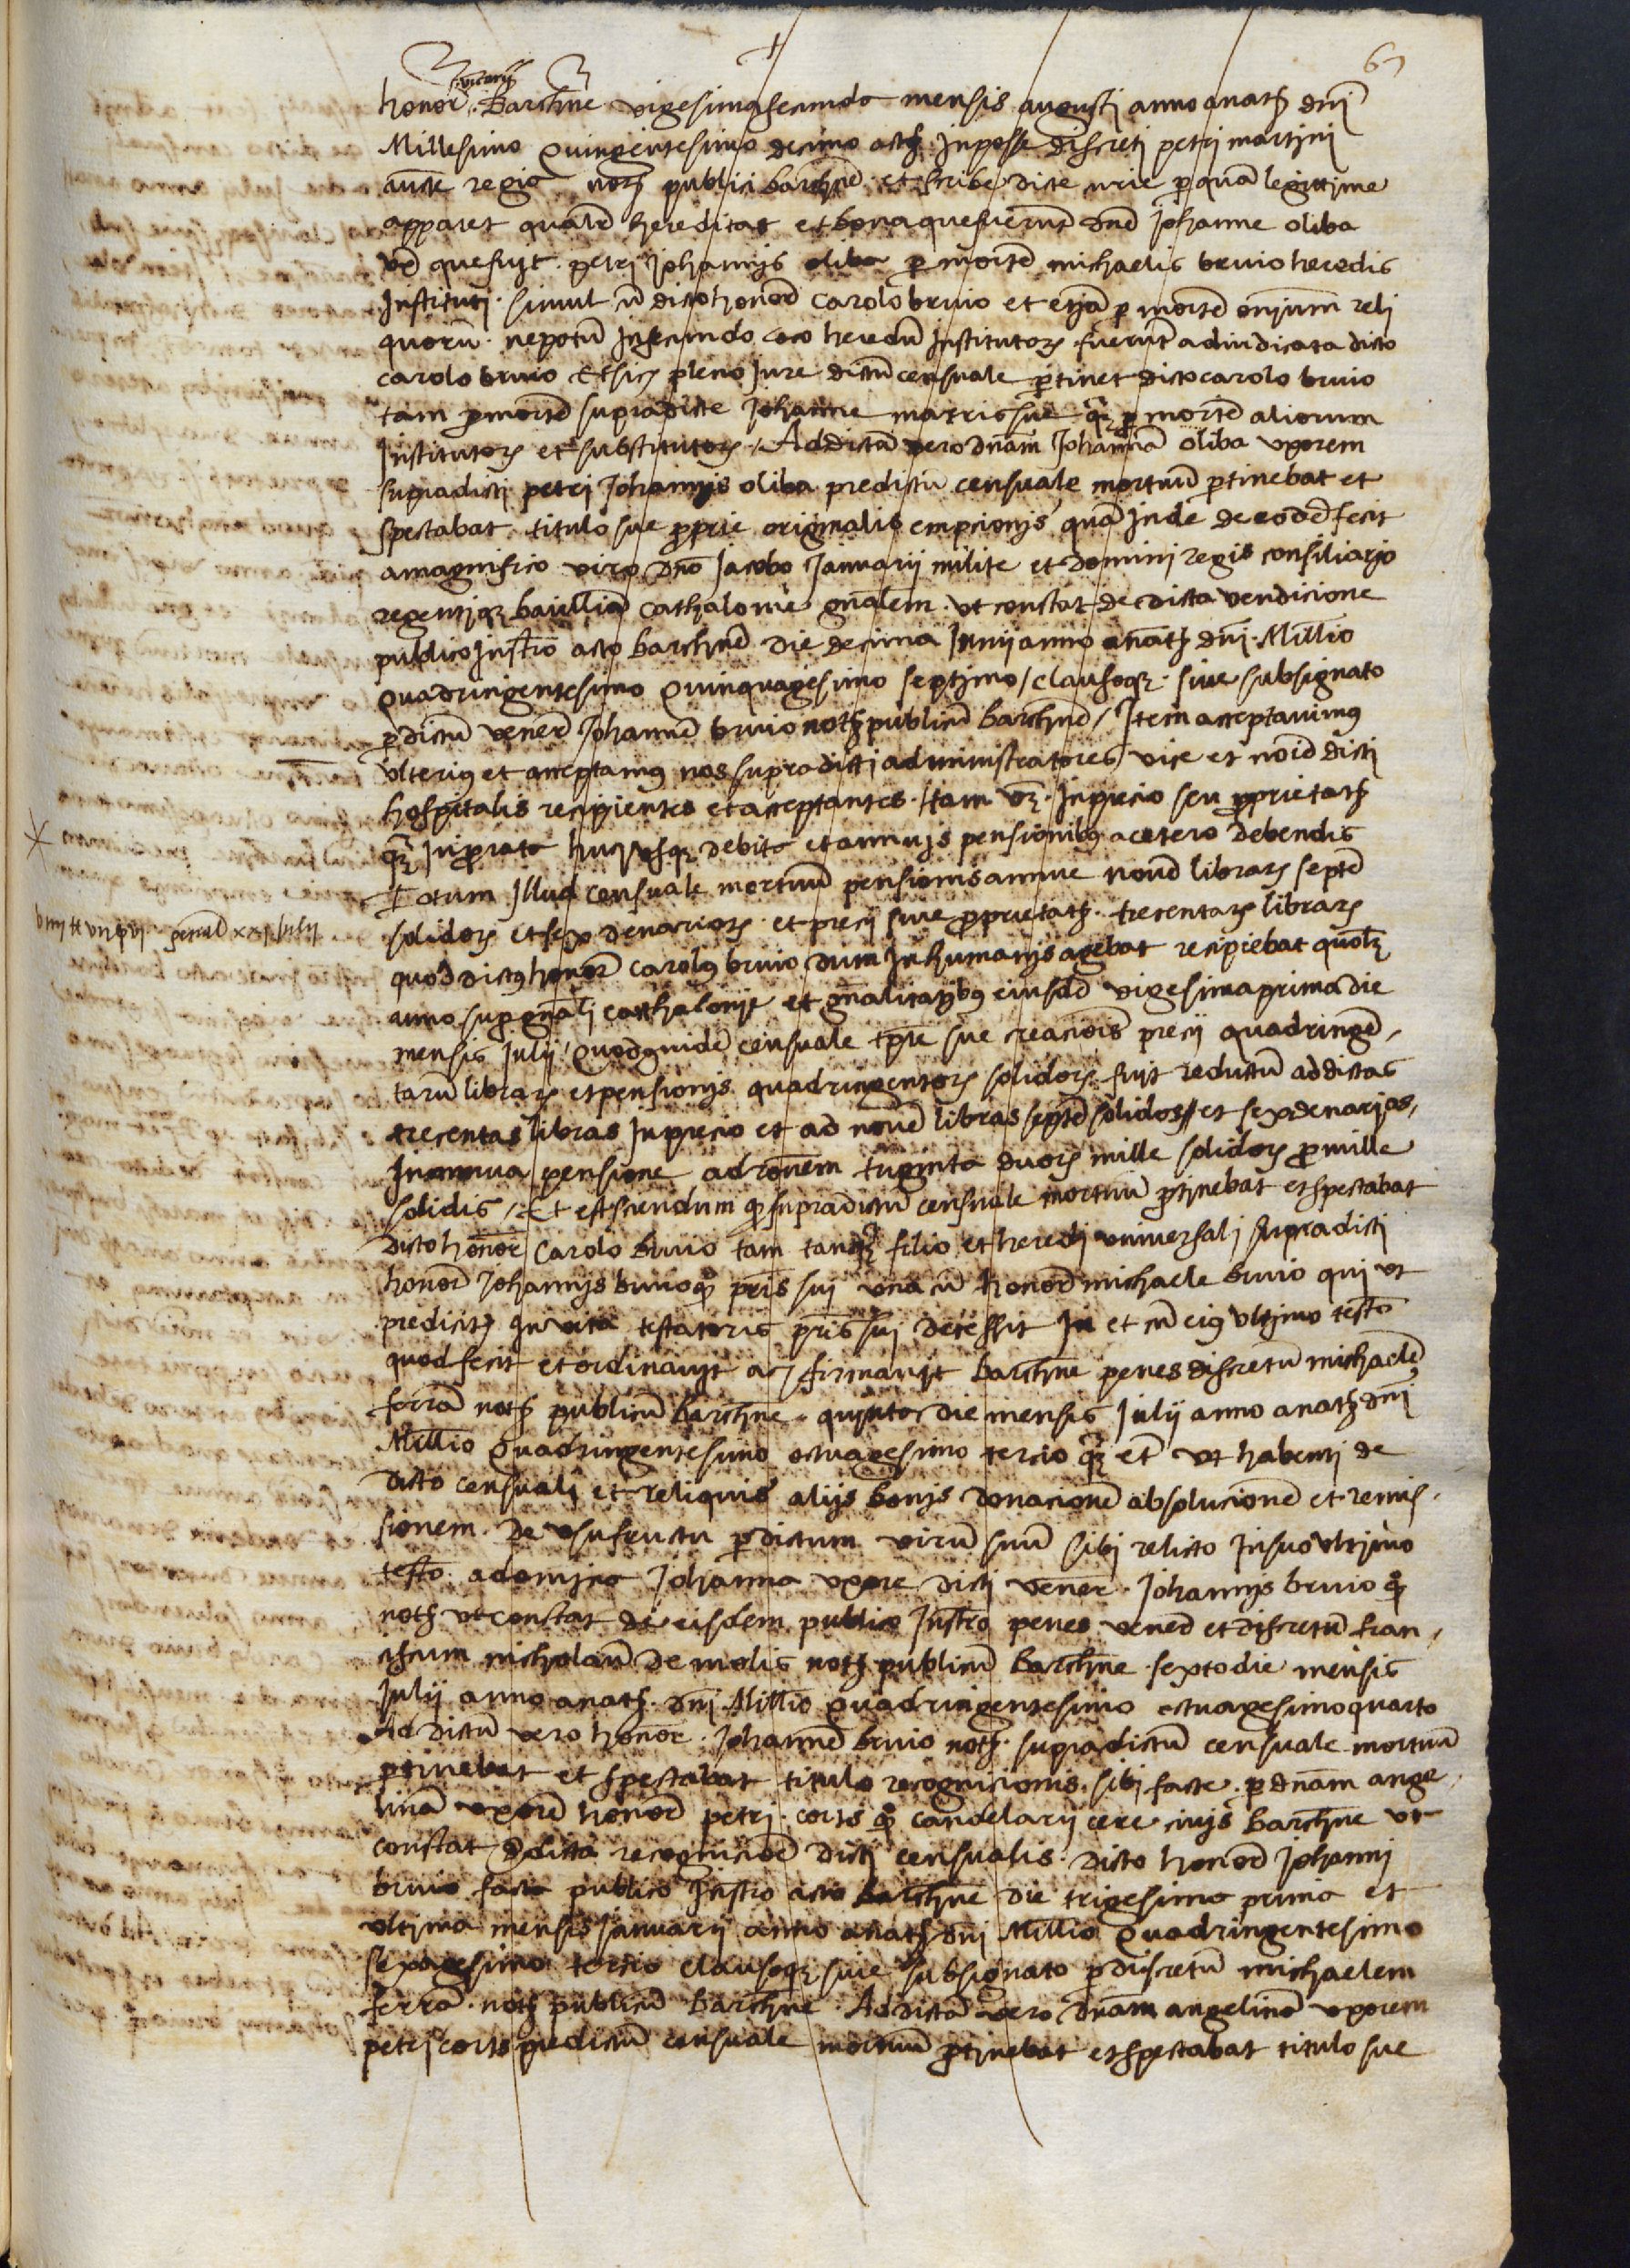 67
vicarij
honor. Barchne vigesimasecunda mensis augusti anno anath dnj
Millesimo Quingentesimo decimo octº Inposse discretj petrj martinj
aucte regia noth publici barchne et scribe dicte curie p quam legittime
apparet qualr hereditas et bona que fuerunt dne Johanne oliba
vx que fuyt petrj Johannjs oliba p mortē michaelis bruio heredis
Institutj simul cū dicto honore carolo bruio et etjā p mortē omjum relj
quorū nepotū Insecundo loco heredū Institutorz fuerut adiudicata dicto
carolo bruio Et sic pleno Jure dictū censuale ptinet dicto carolo bruio
tam p mortē supradicte Johanne matris sue qz p mortē aliorum
Institutorz et substitutorz / Ad dictā vero dnam Johannā oliba vxorem
supradictj petrj Johannjs oliba predictū censuale mortuū ptinebat et
spectabat titulo sue pprie originalis empcionjs quā Inde de eodē fecit
a magnifico viro dno Jacobo Januarij milite et dominj regis consiliarjo
regentjqz baiulliā cathalonie gnalem vt constat de dicta vendicione
publico Instro acto barchne die decima Junij anno anath dnj Millio
Quadringentesimo Quinquagesimo septjmo / clausoqz siue subsignato
p dictū vener Johannē bruio noth publicū barchne / Item acceptauimus
vlterius et acceptamus nos supradictj administratores vice et noīe dictj
hospitalis recipientes et acceptantes tam vz In precio seu pprietath
qz Inprorata hucusqz debita et annujs pensionibus a cetero debendis
Totum Illud censuale mortuū pensionis annue nouē librarz septē
solidorz et sex denariorz et precij siue pprietath trecentarz librarz
quod dictus honor carolus bruio dum In humanjs agebat recipiebat quolz
anno sup gnalj cathalonje et gnalitatjbus eiusdē vigesimaprima die
mensis Julij / Quodquidē censuale tpre sue creacionis precij quadringē
tarū librarz et pensionjs quadringentorz solidorz fuyt reductū ad dictas
trecentas libras In precio et ad nouē libras septē solidos et sex denarjos
In annua pensione ad ronem triginta duorz mille solidorz p mille
solidis / Et est sciendum qz supradictū censuale mortuū ptjnebat et spectabat
dicto honor Carolo bruio tam tanqz filio et heredj vniuersalj supradictj
honor Johannjs bruio qo pris suj vna cū honore michaele bruio quj vt
predicith In vita testatoris pris suj decessit In et cū eius vltjmo testo
quod fecit et ordinauyt ac firmauyt barchne penes discretū michaelē
ferrā noth publicū barchne quinto die mensis Julij anno anath dnj
Millio Quadringentesimo octuagesimo tercio qz et vt habentj de
dicto censualj et reliquis alijs bonjs donacionē absolucionē et remis
sionem de vsufructu p dictum virū suū sibj relicto In suo vltjmo
testo a domina Johanna vxore dictj vener Johannjs bruio qo
noth vt constat de eisdem publico Instro penes vener et discretū fran
ciscum nicholaū de molis noth publicū barchne sexto die mensis
Julij anno anath dnj Millio Quadringentesimo octuagesimo quarto
Ad dictū vero honor Johannē bruio noth supradictū censuale mortuū
ptinebat et spectabat titulo recognicionis sibj facte p dnam ange
linā vxorē honor petrj corts qo candelarij cere ciujs barchne vt
constat de dicta recognicione dictj censualis dicto honore Johannj
bruio facta publico Instro acto barchne die trigesima prima et
vltima mensis Januarij anno anath dnj Millio Quadringentesimo
sexagesimo tercio clausoqz siue subsignato p discretū michaelem
ferrā noth publicū barchne Ad dictā vero dnam angelinā vxorem
petrj corts predictū censuale mortuū ptjnebat et spectabat titulo sue
general xxj Julij